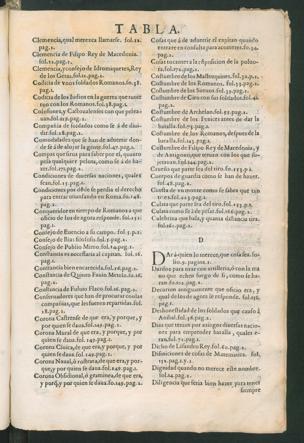 TABLA.
Clemencia, qual merezca llamarse. fol.12.
pag.1.
Clemencia de Filipo Rey de Macedonia.
fol.12.pag.1.
Clemencia, y consejo de Idromiquetes, Rey
de los Getas. fol.12.pag.1.
Codicia de vnos soldados Romanos. fo.38.
pag.1.
Codicia de los Iudios en la guerra que tuuie
ron con los Romanos. fo.38.pag.1.
Colusiones, y Cathonalentes con que
fol.201.pag.1.
Compañia de soldados como se á de diui-
dir. fol.48.pag.1.
Comodidades que se han de aduertir don-
de se á de alojar la gente. fo.47.pag.1.
Compas que sirua para saber por el, quanto
pesa qualquier pelota, como se á de ha-
zer. fol.
Condiciones de diuersas naciones, quales
sean. fo.41.pag.1.
Condiciones por dõde se perdia el derecho
para entrar triunfando en Roma. fo.148.
pag.1.
Conqueridor en tiempo de Romanos a que
oficio de los de agora responde. fol.151.
pag.1.
Consejo de Esencio a su campo. fol.5.p.1.
Consejo de Bias filosofo. fol.1.pag.1.
Consejo de Publio Mimo. fol.14.pag.1.
Constancia es necessaria al capitan. fol.16.
pag.1.
Constancia bien encarecida. fol.16.pag.1.
Constancia de Quinto Fauio Metelo. fo.16.
pag.1.
Constancia de Fuluio Flaco. fol.16. pag.1.
Conseruadores que han de procurar contas
compañias, que los fueren repartidas. fol.
18.pag.1.
Corona Castrense de que era, y porque, y
por quien se daua. fol.149.pag.1.
Corona Mural de que era, y porque, y por
quien se daua. fol.149.pag.1.
Corona Ciuica, de que era, y porque, y por
quien se daua. fol.149.pag.1.
Corona Naual, ò rostrata, de que era, y por-
que, y por quien se daua. fol.149.pag.1.
Corona Obsidional, ò graminea, de que era,
y porq̃, y por quien se daua. fo.149.pag.1.
Cosas que á de aduertir el capitan quando
entrare en consulta para acometer. fo.34.
pag.1.
Cosas tocantes a la disposicion de la poluo-
ra. fol.172.pag.1.
Costumbre de los Mastroquines. fol.32.p.1.
Costumbre de los Romanos. fol.32.pag.1.
Costumbre de los Sueuos. fol.33.pag.1.
Costumbre de Ciro con sus soldados. fol.42.
pag.1.
Costumbre de Archelao. fol.87.pag.1.
Costumbre de los Iynicetas antes de dar la
batalla. fol.73.pag.1.
Costumbre de los Romanos, despues de la
batalla. fol.143.pag.1.
Costumbre de Filipo Rey de Macedonia, y
de Antigono, que tenian con los que su-
jetauan. fol.144.pag.1.
Cruxia que parte sea del tiro. fol.153.p.1.
Cuerpos de guardia como se han de hazer.
fol.48.pag.1.
Cuesta de vn monte como se sabra que tan
viua es. fol.123.pag.1.
Culata que parte sea del tiro. fol.153.pag.1.
Culata como se á de pesar. fol.186.pag.1.
Culebrina que bala, y quanta distancia tira.
fol.161.pag.1.
D
DAr á quien lo merece, que cosa sea. fo-
lio.9. pagina.1.
Daños para tirar con artilleria, con la ma
no que echen fuego de si, como se ha-
ran fo.202.pag.1.
Decurion antiguamente que oficio era, y
qual de los de agora le responde. fol.156.
pag.1.
Deshonestidad de los soldados que causò á
Anibal. fol.36.pag.1.
Dias que tenian por aziagos diuersas nacio-
nes para emprender batalla, quales e-
ran. fol.71. pag.1.
Dicho de Lisandro Rey. fol.60.pag.1.
Difiniciones de cosas de Matematica. fol.
152.pag.1.y.2.
Dignidad quando no merece este nombre.
fol.14.pag.1.
Diligencia que seria bien hazer para tener
siempre